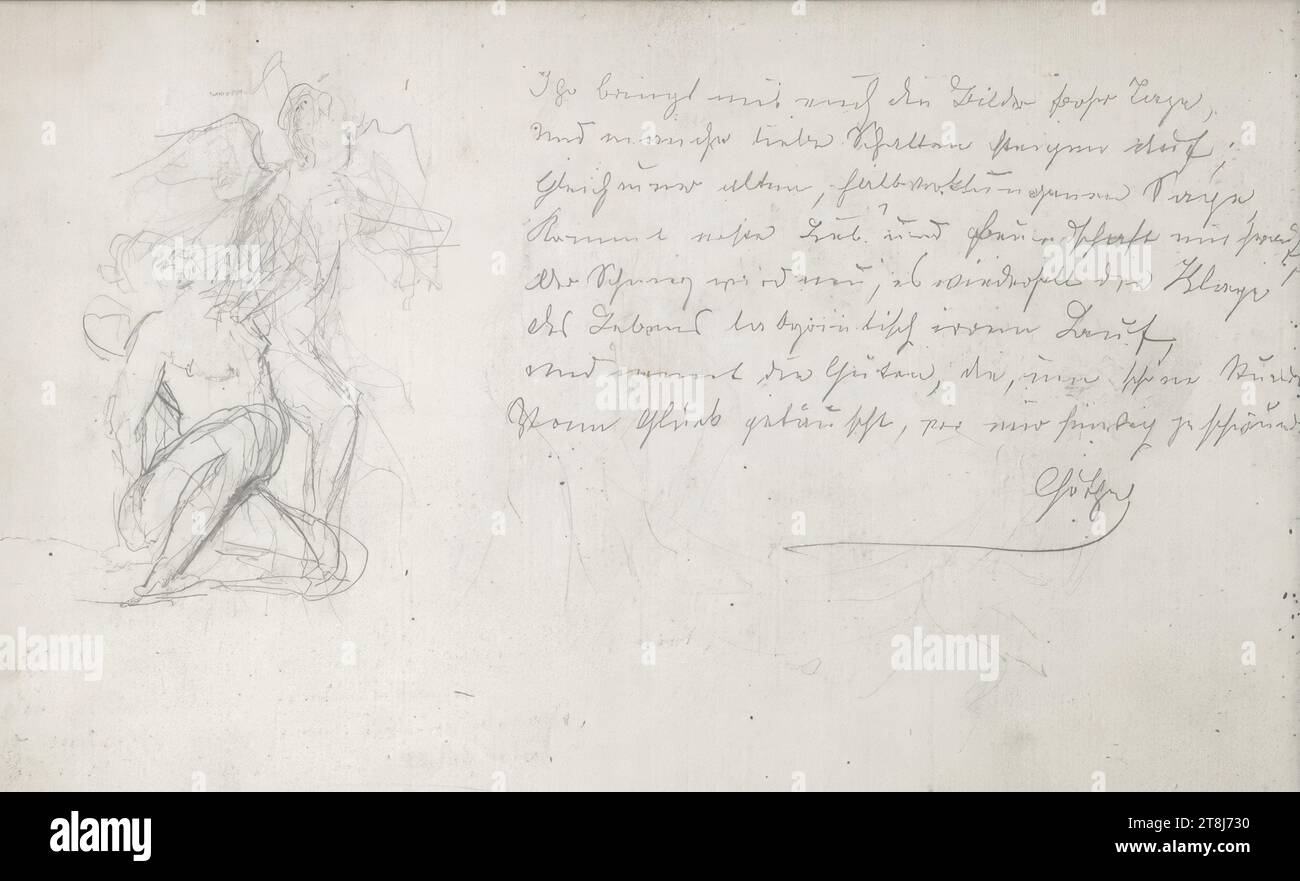 Ihr bringt mit euch die Bilder froher Tage,
Und manche liebe Schatten steigen auf;
Gleich einer alten, halbverklungenen Sage,
Kommt erste Lieb' und Freundschaft mit herauf;
Der Schmerz wird neu, es wiederholt die Klage
des Lebens labyrintisch irren Lauf,
und nennt die Guten, die, um schöne Stunden
Vom Glück getäuscht, vor mir hinweg geschwunden
Göthe
alamy
Image ID: 2T8J730
www.alamy.com